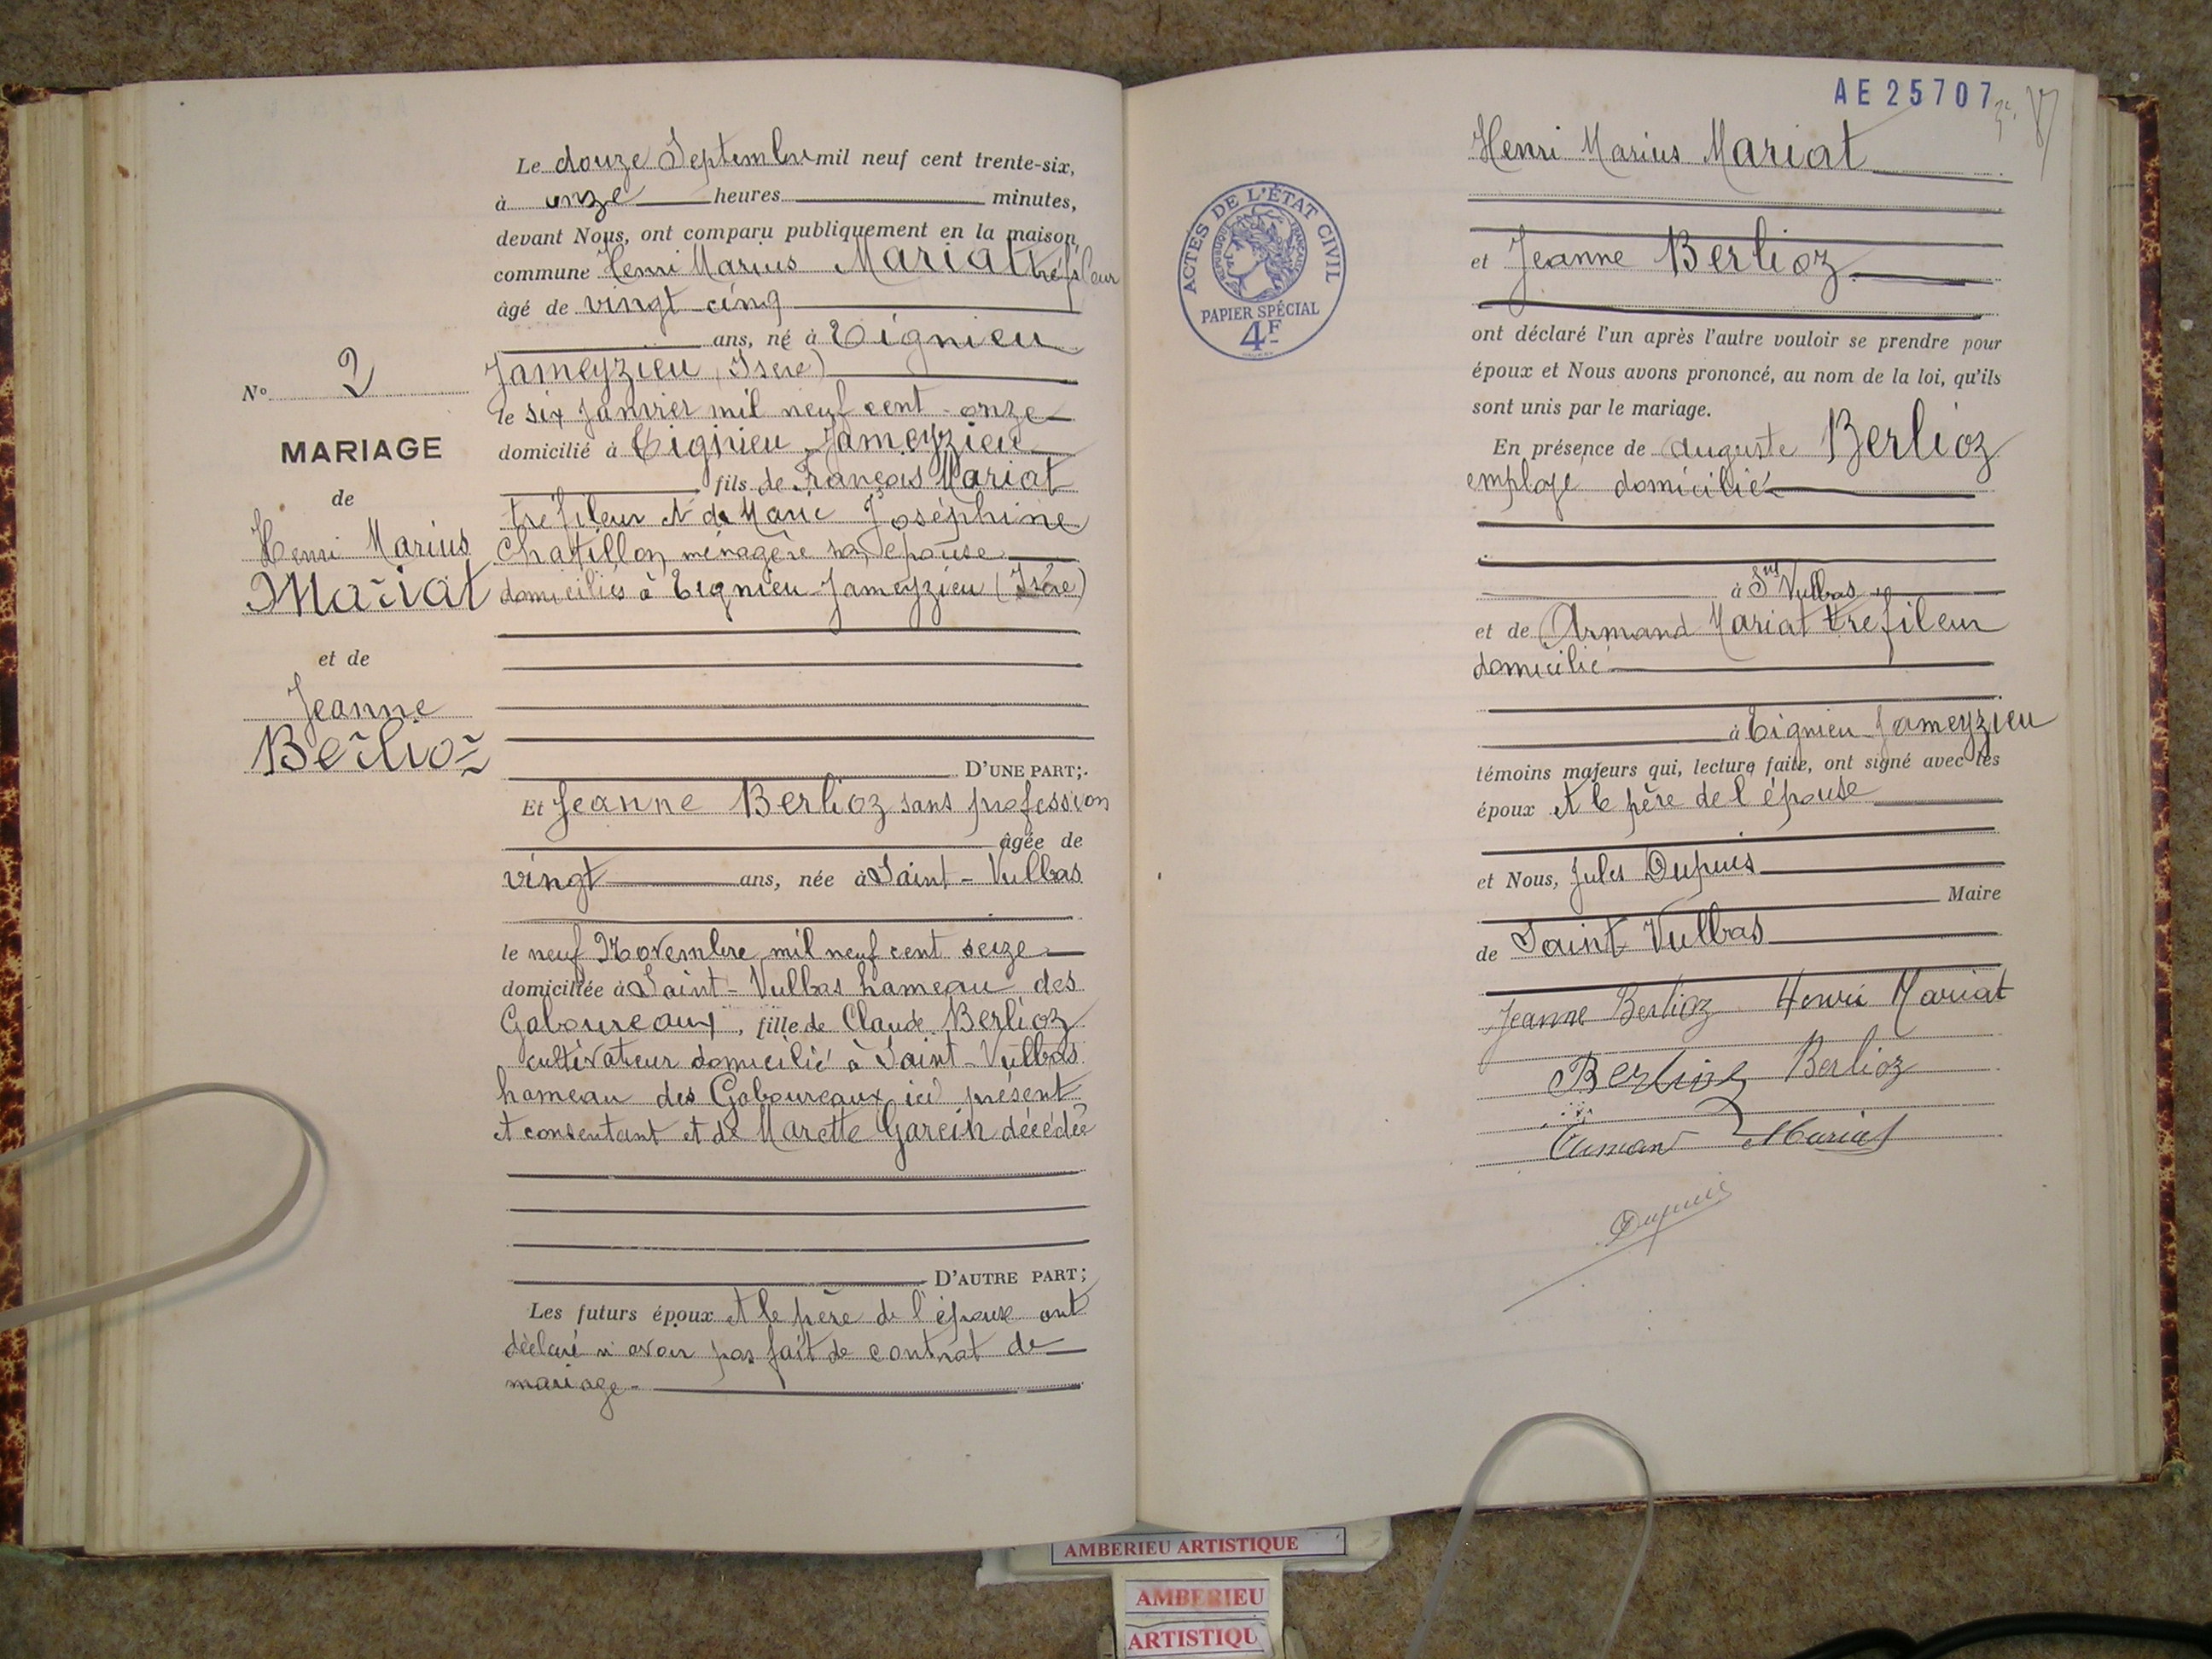 Le douze Septembre mil neuf cent trente-six,
à onze heures minutes,
devant Nous, ont comparu publiquement en la maison
commune Henri Marius Mariat tréfileur
âgé de vingt-cinq
ans, né à Tignieu
Jameyzieu (Isère)
le six Janvier mil neuf cent onze
domicilié à Tignieu-Jameyzieu
fils de François Mariat
tréfileur et de Marie Joséphine
Chatillon, ménagère son épouse
domiciliés à Tignieu-Jameyzieu (Isère)
D'UNE PART;
Et Jeanne Berlioz sans profession
âgée de
vingt ans, née à Saint-Vulbas
le neuf Novembre mil neuf cent seize
domiciliée à Saint-Vulbas hameau des
Gaboureaux, fille de Claude Berlioz
cultivateur domicilié à Saint-Vulbas
hameau des Gaboureaux, ici présent
et consentant et de Marette Garcin décédée
D'AUTRE PART;
Les futurs époux et le père de l'épouse ont
déclaré n'avoir pas fait de contrat de
mariage.
No 2
MARIAGE
de
Henri Marius
Mariat
et de
Jeanne
Berlioz
AE25707
Henri Marius Mariat
et Jeanne Berlioz
ont déclaré l'un après l'autre vouloir se prendre pour
époux et Nous avons prononcé, au nom de la loi, qu'ils
sont unis par le mariage.
En présence de Auguste Berlioz
employé domicilié
à St Vulbas
et de Armand Mariat tréfileur
domicilié
à Tignieu-Jameyzieu
témoins majeurs qui, lecture faite, ont signé avec les
époux et le père de l'épouse
et Nous, Jules Dupuis
Maire
de Saint Vulbas
Jeanne Berlioz Henri Mariat
Berlioz Berlioz
Armand Mariat
Dupuis
ACTES DE L'ÉTAT CIVIL
RÉPUBLIQUE FRANÇAISE
PAPIER SPÉCIAL
4F
AMBERIEU ARTISTIQUE
AMBERIEU
ARTISTIQU